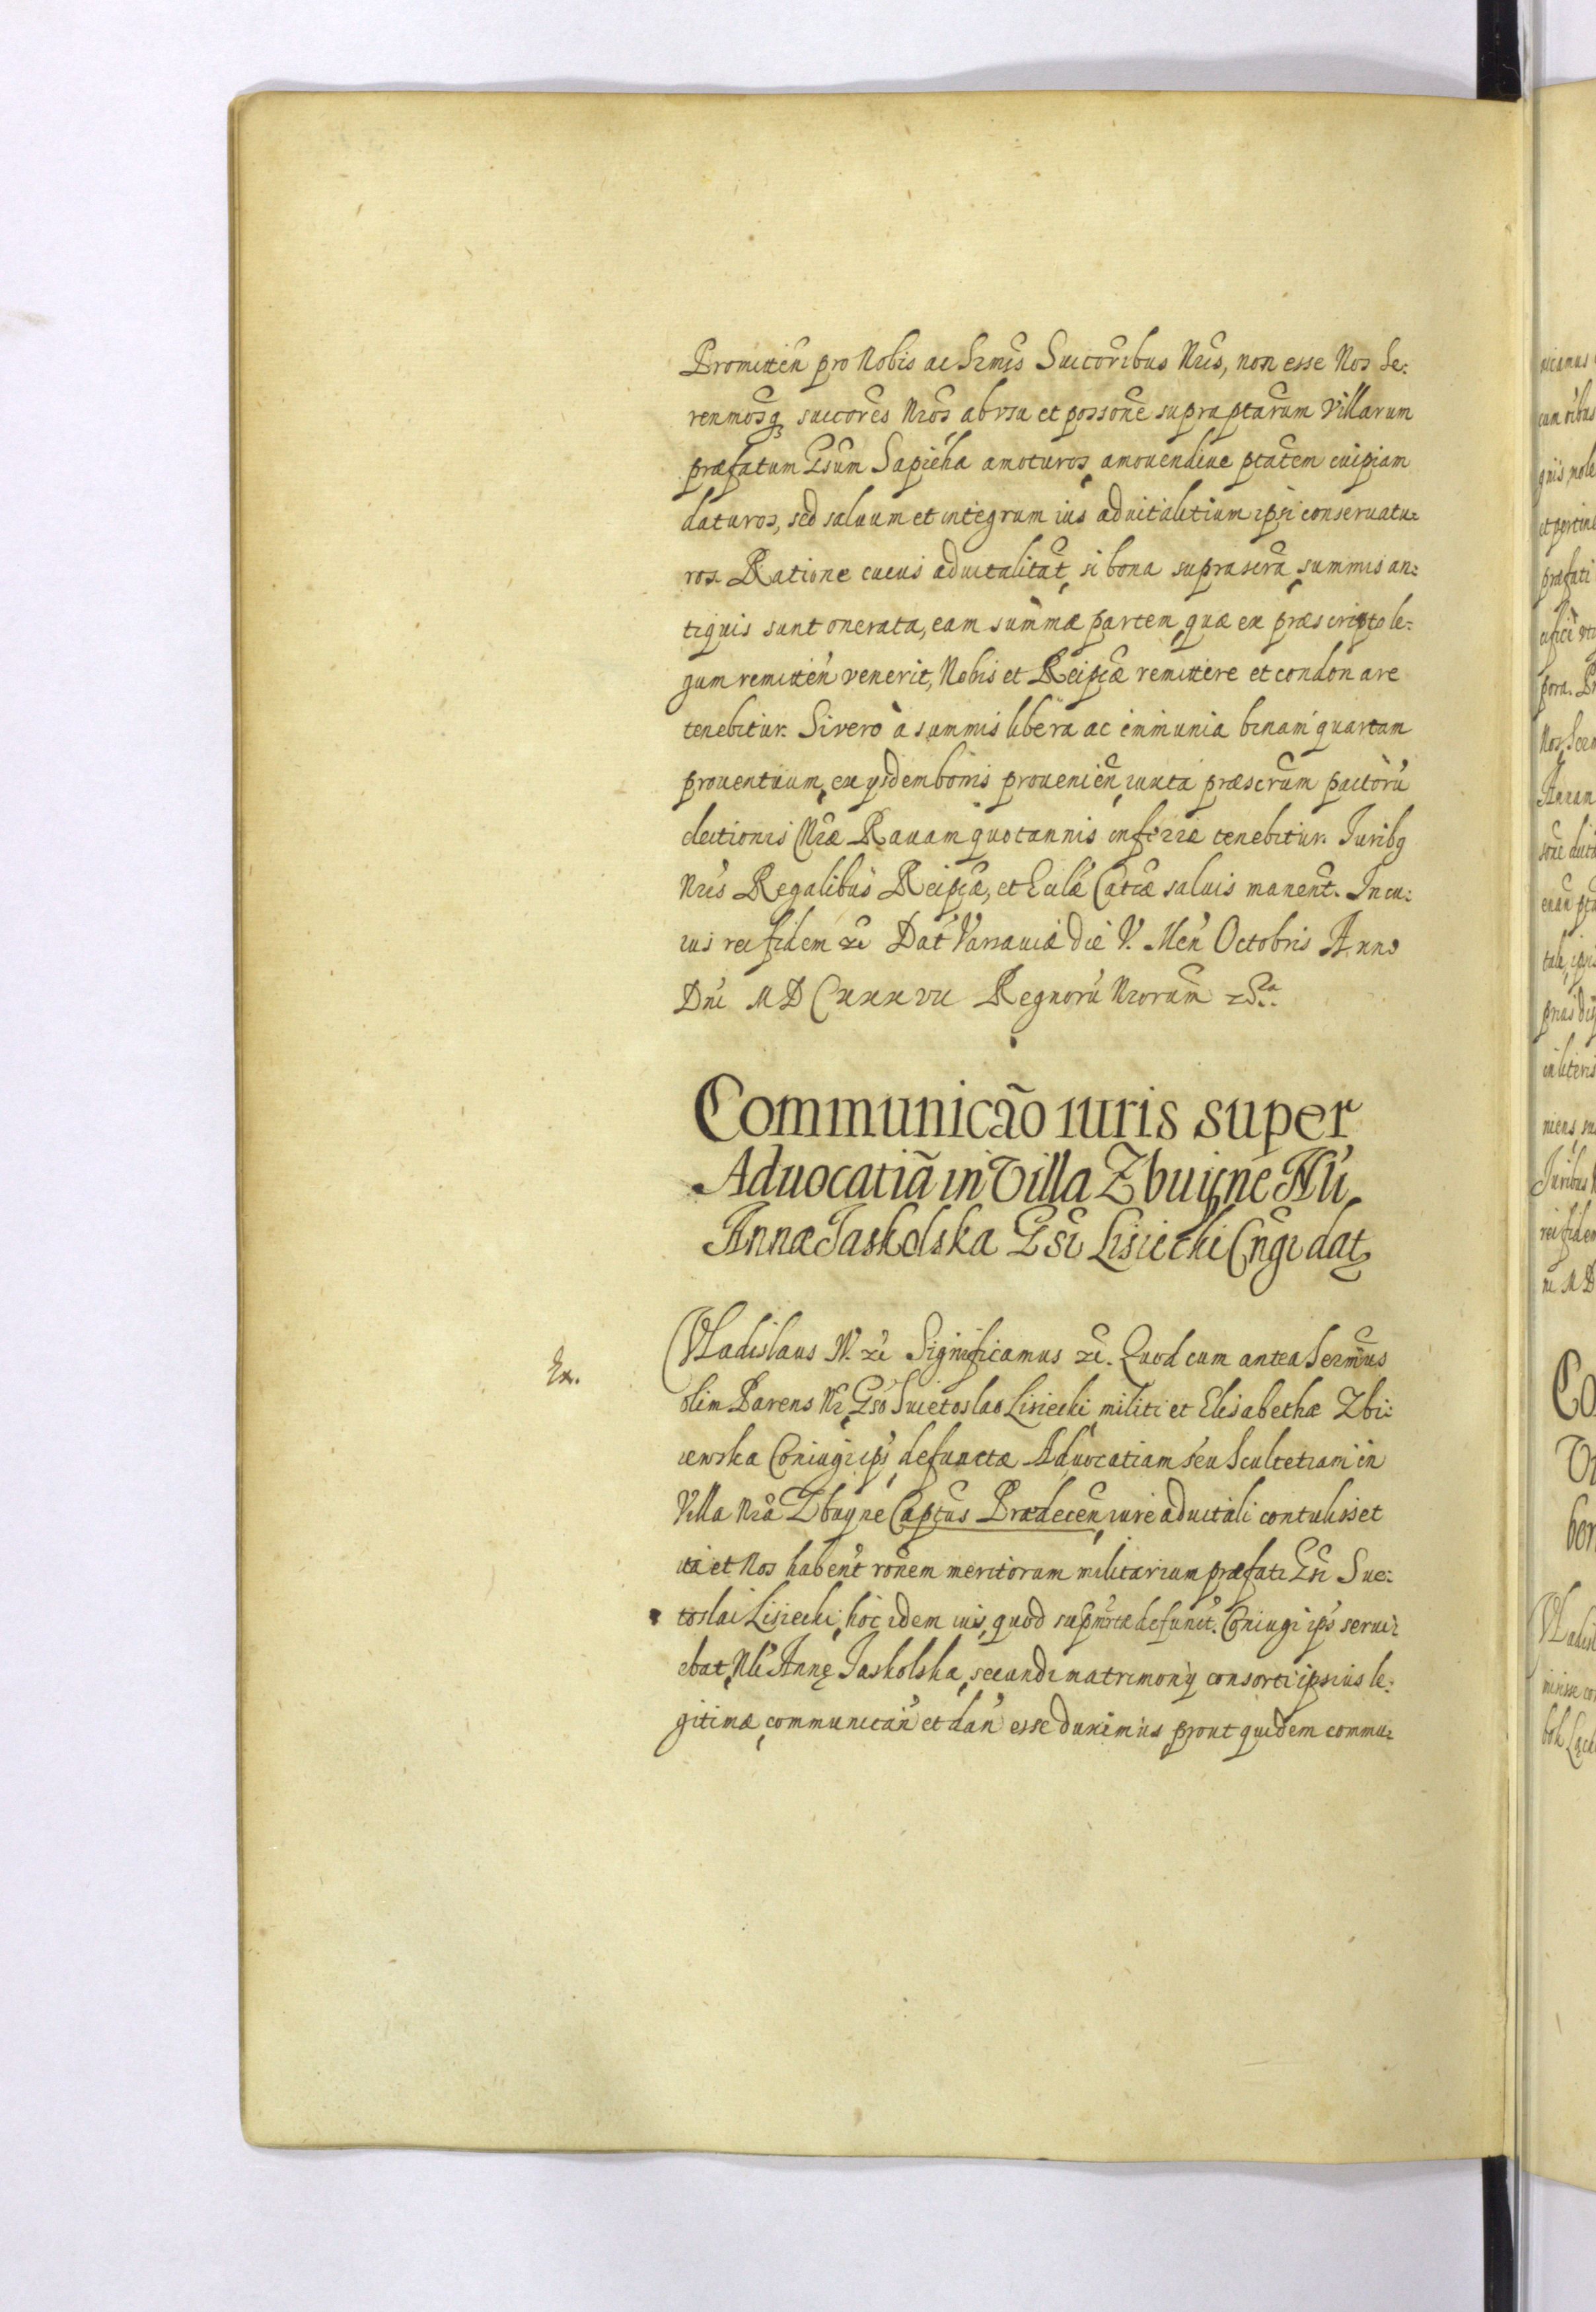 Promitteñ pro Nobis ac Srmis Succoribus Nris, non esse Nos Se:
renmosq succores Nros ab vsu et possone supraptarum Villarum
præfatum Gsum Sapieha amoturos, amouendiue ptatem cuipiam
daturos, sed saluum et integrum ius aduitalitium ipsi conseruatu:
ros. Ratione cuius aduitalitat, si bona suprascra summis an:
tiquis sunt onerata, eam summæ partem, quæ ex præscripto le:
gum remitteñ venerit, Nobis et Reipcæ remittere et condonare
tenebitur. Si vero à summis libera ac immunia binam quartam
prouentuum, ex ysdem bonis prouenieñ, iuxta præscrum pactorũ
electionis Nræ Rauam quotannis inferre tenebitur. Juribq
Nris Regalibus Reipcæ, et Eccliæ Catcæ saluis maneñt. In cu:
ius rei fidem &c Dat Varsauiæ die V. Men Octobris Anno
Dni MDCxxxvii Regnorũ Nrorum &c.
Communicão iuris super
Aduocatiã in Villa Zbuyne Nli
Annæ Jaskolska Gsi Lisiecki Cngi dat
Ex.
Vladislaus IV. &c Significamus &c. Quod cum antea Sermus
olim Parens Nr, Gso Suietoslao Lisiecki militi et Elisabethæ Zbi:
iewska Coniugi ips defunctæ Aduocatiam seu Scultetiam in
Villa Nra Zbuyne Captus Prædeceñ, iure aduitali contulisset
ita et Nos habent ronem meritorum militarium præfati Gsi Sue:
toslai Lisiecki, hoc idem ius, quod defunct. Coniugi ips serui:
ebat, Nli Annę Jaskolska, secundi matrimony consorti ipsius le:
gitimæ, communicañ et dañ esse duximus prout quidem commu: